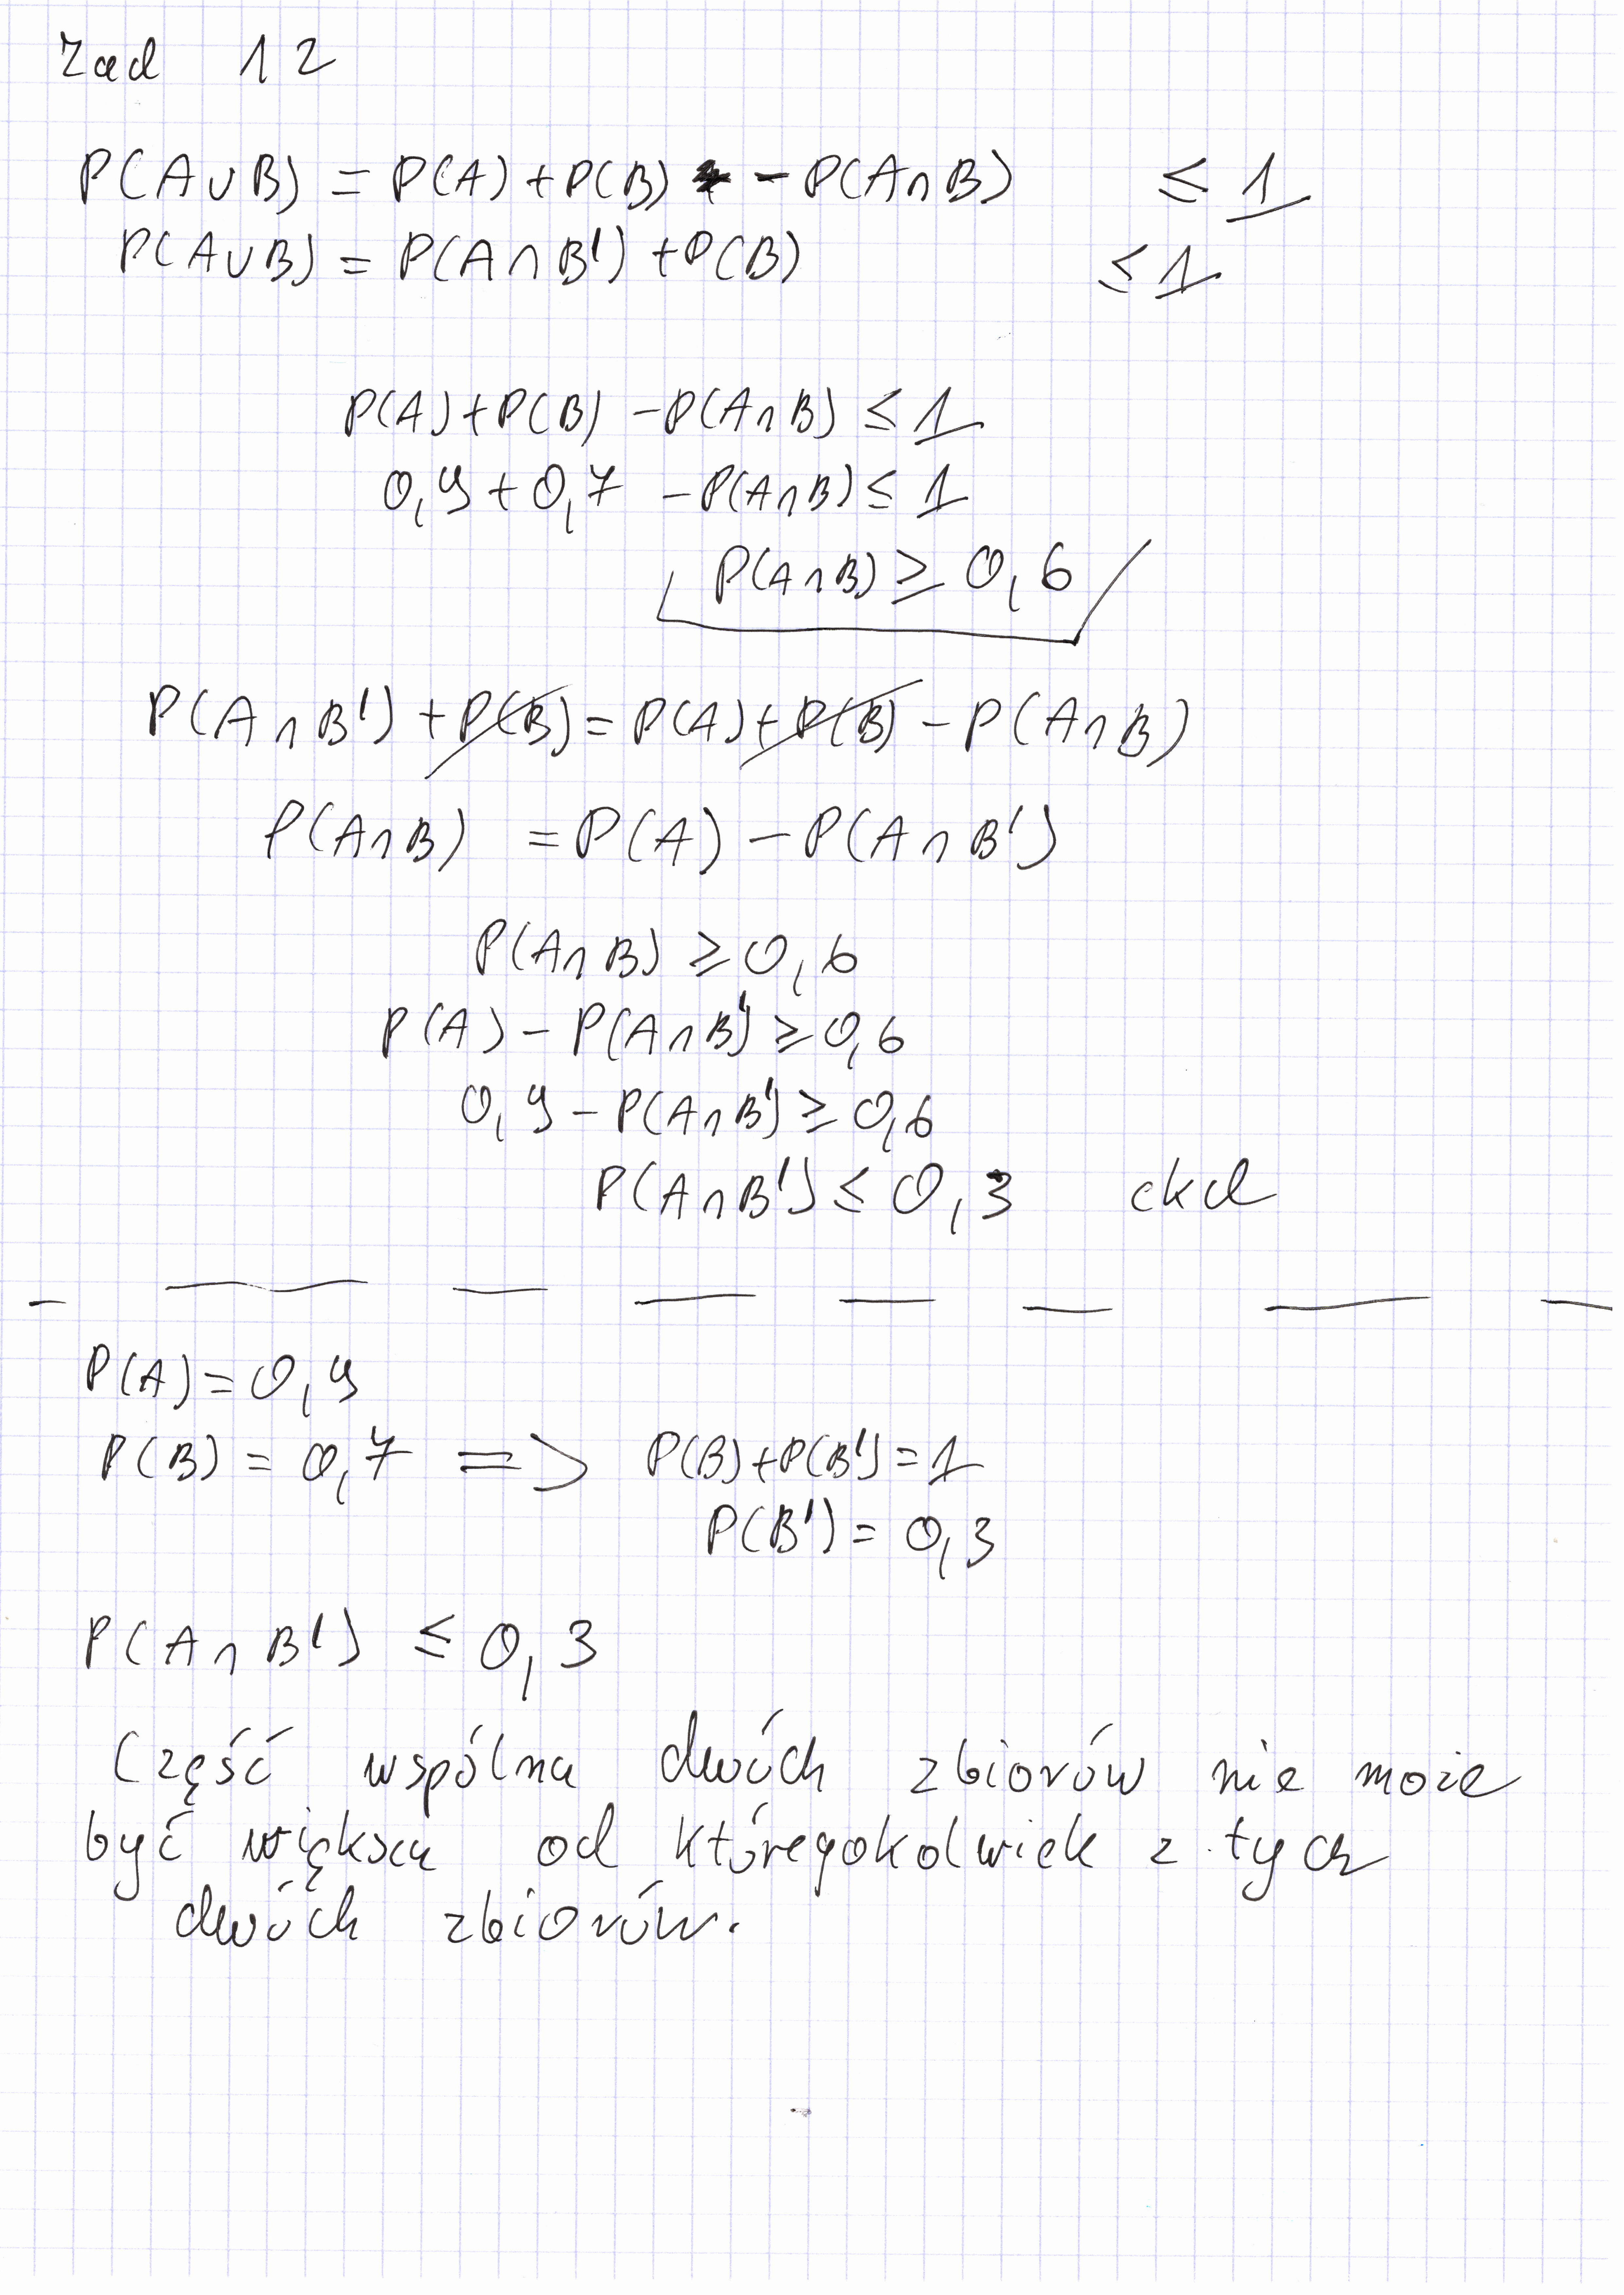 Zad 12
P(A∪B) = P(A) + P(B) - P(A∩B) ≤ 1
P(A∪B) = P(A∩B') + P(B) ≤ 1
P(A) + P(B) - P(A∩B) ≤ 1
0,9 + 0,7 - P(A∩B) ≤ 1
P(A∩B) ≥ 0,6
P(A∩B') + P(B) = P(A) + P(B) - P(A∩B)
P(A∩B) = P(A) - P(A∩B')
P(A∩B) ≥ 0,6
P(A) - P(A∩B') ≥ 0,6
0,9 - P(A∩B') ≥ 0,6
P(A∩B') ≤ 0,3 ckd
P(A) = 0,9
P(B) = 0,7 => P(B) + P(B') = 1
P(B') = 0,3
P(A∩B') ≤ 0,3
Część wspólna dwóch zbiorów nie może
być większa od któregokolwiek z tych
dwóch zbiorów.